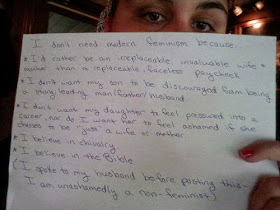 I don't need modern feminism because:
* I'd rather be an irreplaceable invaluable wife &
mother than a replaceable, faceless paycheck
* I don't want my son to be discouraged from being
a strong leading man/father/husband
* I don't want my daughter to feel pressured into a
career, nor do I want her to feel ashamed if she
chooses to be "just" a wife or mother
* I believe in chivalry
* I believe in the Bible
(I spoke to my husband before posting this-
I am unashamedly a non-feminist)